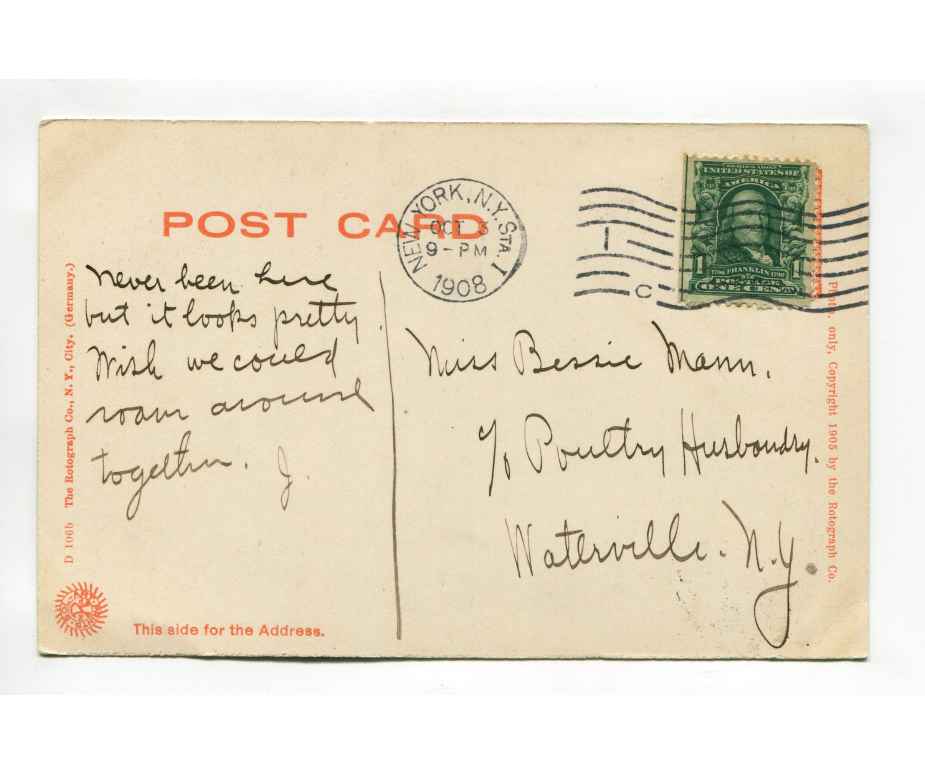 POST CARD
NEW YORK, N.Y. STA. I
OCT 3
9-PM
1908
C
SERIES 1902
UNITED STATES OF
AMERICA
1706 FRANKLIN 1790
POSTAGE
1 ONE CENT 1
Never been here
but it looks pretty.
Wish we could
roam around
together. J.
Miss Bessie Mann.
c/o Poultry Husbandry.
Waterville. N.Y
D 106b The Rotograph Co., N. Y., City. (Germany.)
Photo. only, Copyright 1905 by the Rotograph Co.
This side for the Address.